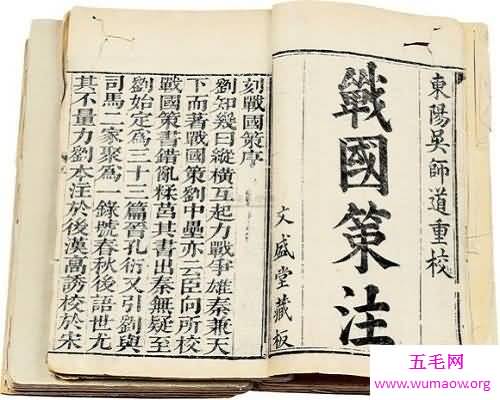 東陽吳師道重校
戰國策注
文盛堂藏板
刻戰國策序
劉知幾曰縱橫互起力戰争雄秦兼天
下而著戰國策劉中壘亦云臣向所校
戰國策書錯亂糅莒其書出秦無疑至
劉始定爲三十三篇晉孔衍又引劉與
司馬二家聚爲一錄號春秋後語世尤
其不量力劉本注於後漢高誘校於宋
五毛网
www.wumaow.org